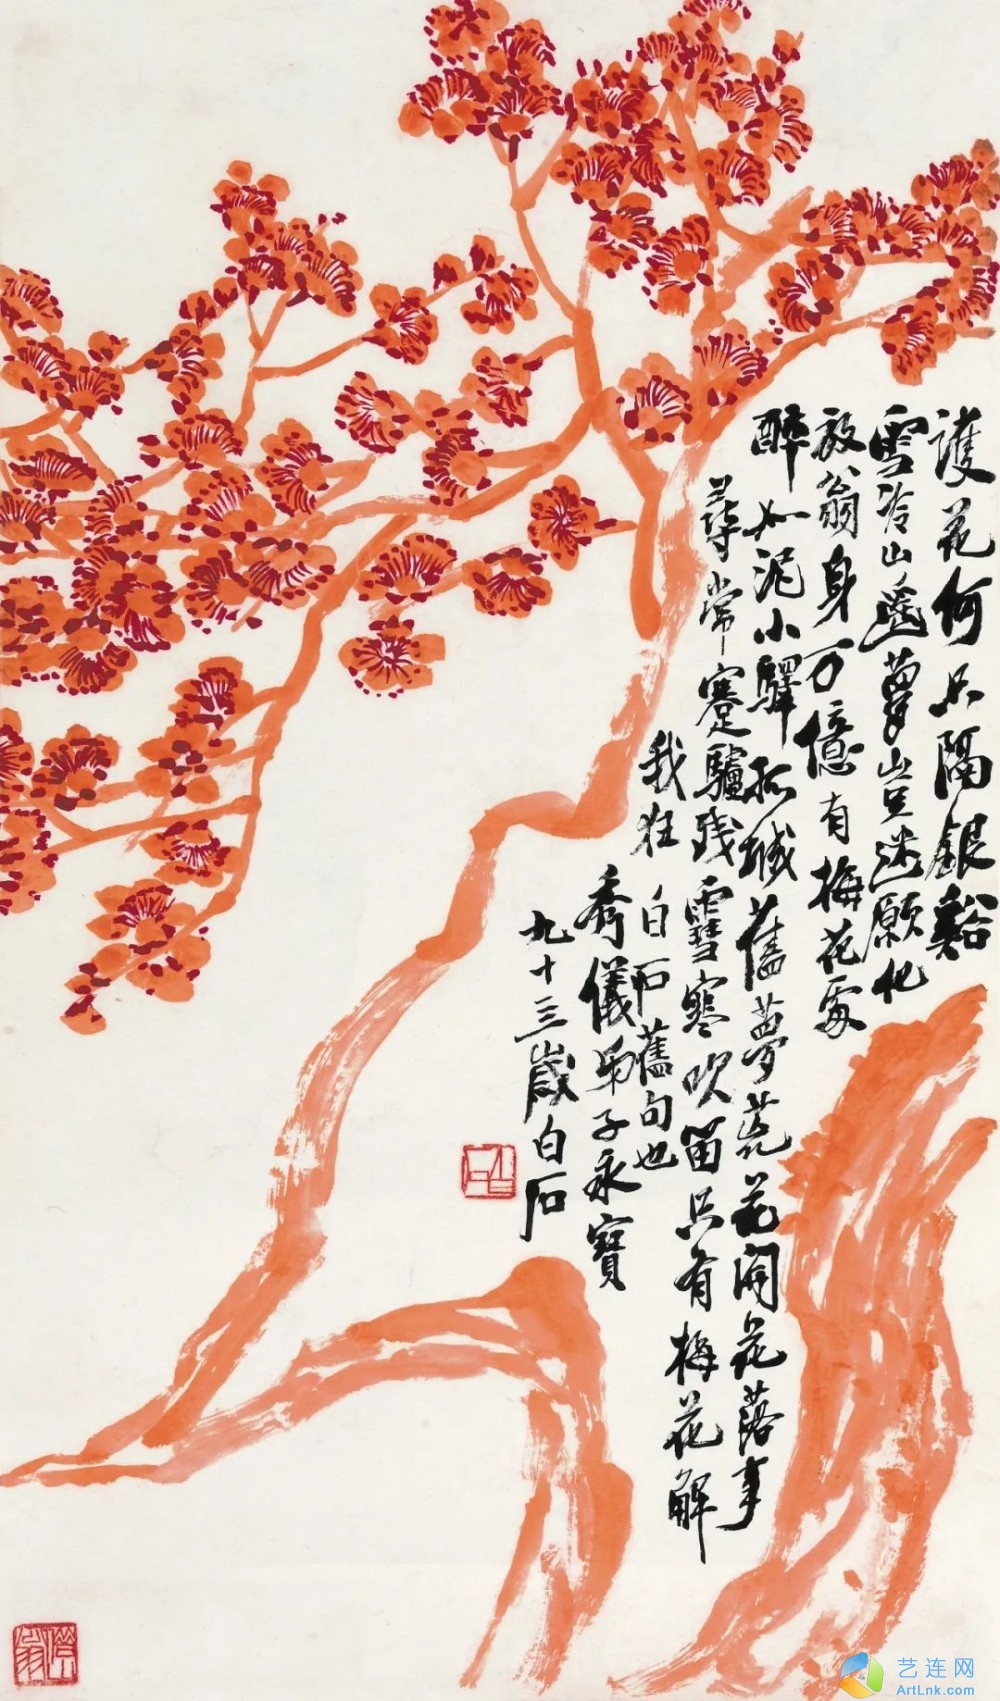 護花何只隔銀谿
雪冷山遥夢豈迷願化
放翁身万億有梅花處
醉如泥小驛孤城舊夢荒花開花落事
尋常蹇驢殘雪寒吹笛只有梅花解
我狂
白石舊句也
秀儀弟子永寶
九十三歲白石
艺连网
ArtLnk.com